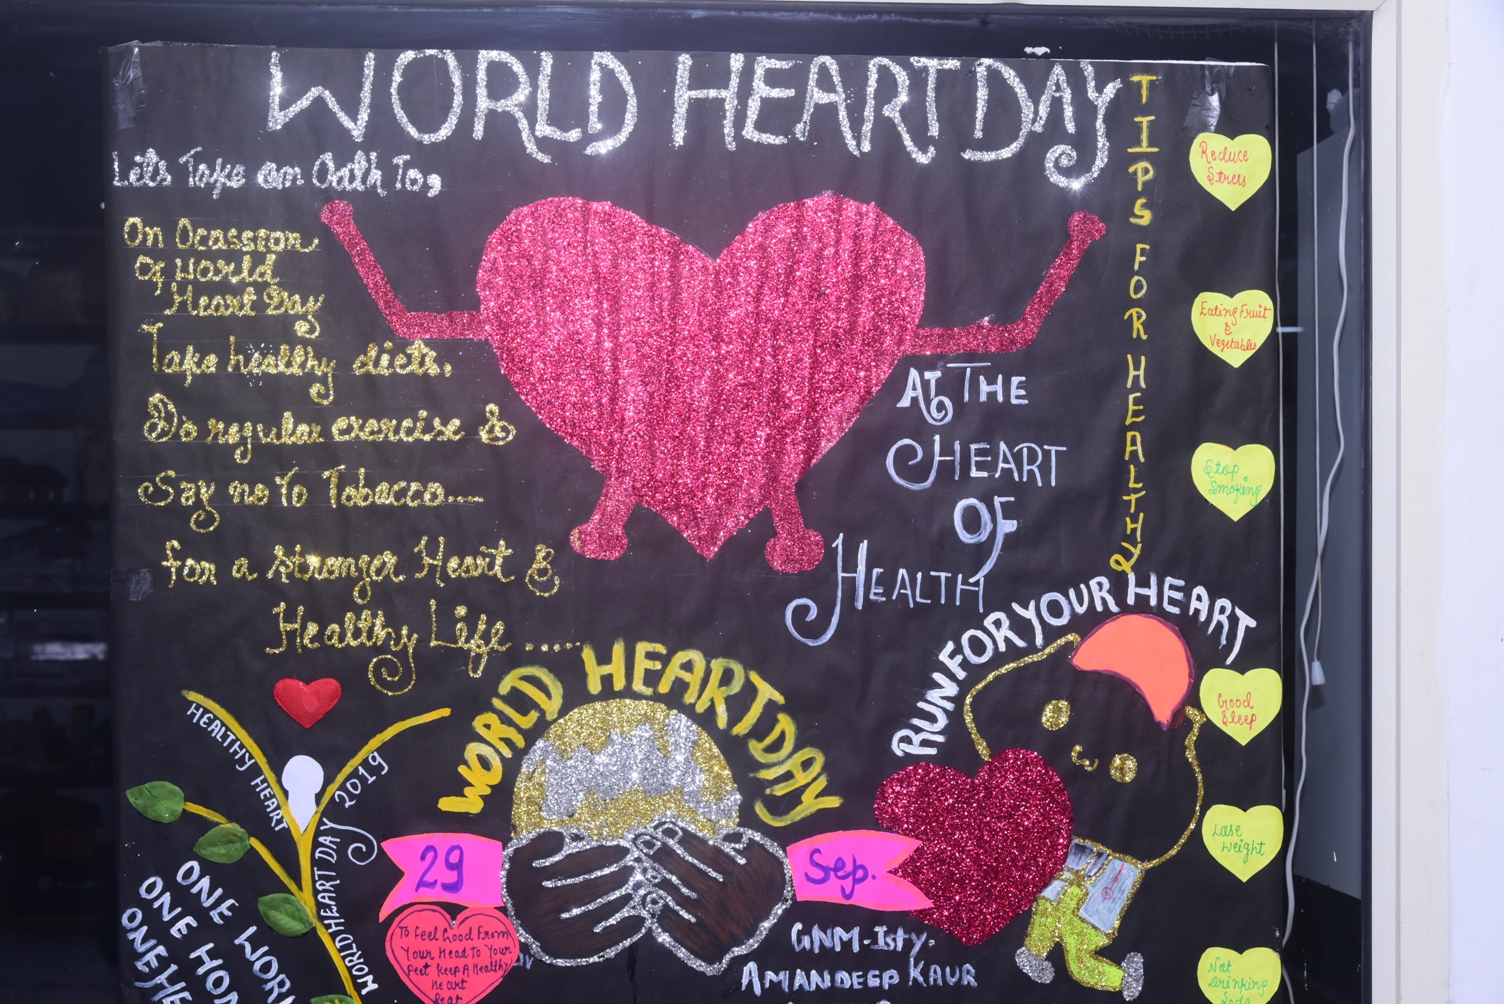 WORLD HEART DAY
Let's Take an Oath To,
On Ocassion
Of World
Heart Day
Take healthy diets,
Do regular exercise &
Say no To Tobacco....
for a stronger Heart &
Healthy Life .....
AT THE
HEART
OF
HEALTH
TIPS FOR HEALTHY
Reduce
Stress
Eating Fruit
&
Vegetables
Stop
Smoking
Good
Sleep
Lose
Weight
Not
Drinking
Soda
RUN FOR YOUR HEART
WORLD HEART DAY
29
Sep.
HEALTHY HEART
WORLD HEART DAY 2019
ONE WOR
ONE HOM
ONE HE
To Feel Good From
Your Head To Your
Feet Keep A Healthy
Heart
Beat
GNM-Ist y.
AMANDEEP KAUR